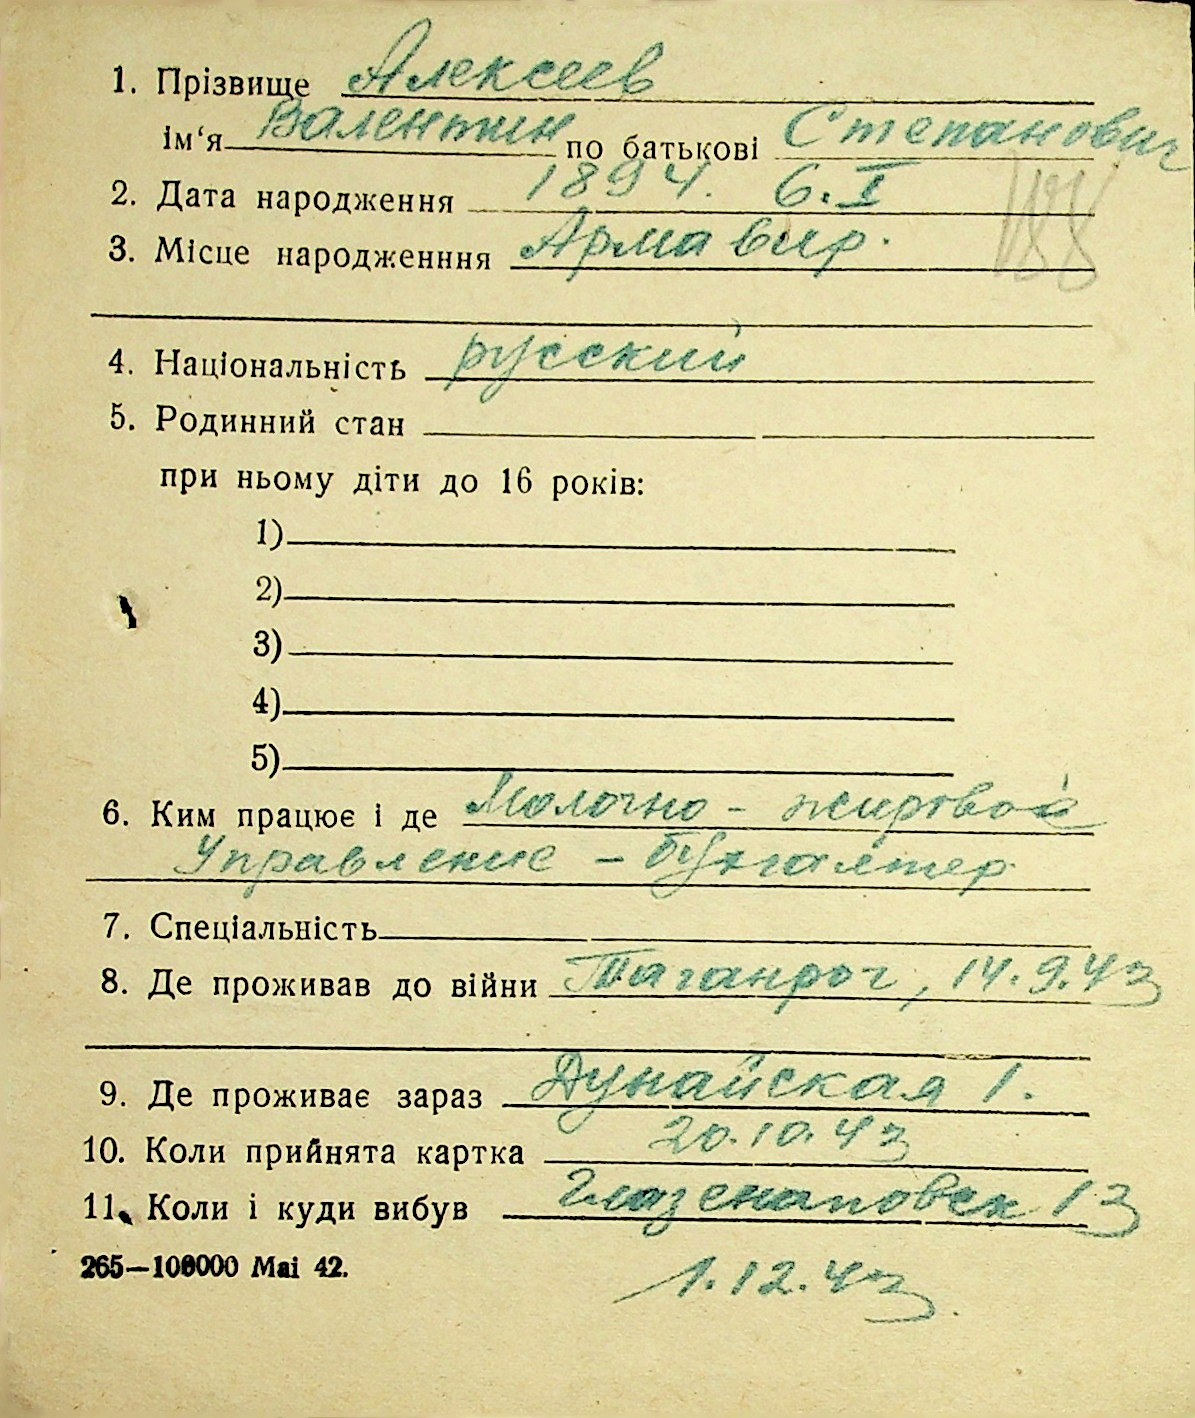 1. Прізвище Алексеев
ім‘я Валентин по батькові Степанович
2. Дата народження 1894. 6.I
3. Місце народженння Армавир.
4. Національність русский
5. Родинний стан
при ньому діти до 16 років:
1)
2)
3)
4)
5)
6. Ким працює і де Молочно - жировой
Управление - бухгалтер
7. Спеціальність
8. Де проживав до війни Таганрог, 14.9.43
9. Де проживає зараз Дунайская 1.
10. Коли прийнята картка 20.10.43
11. Коли і куди вибув Глазенаповск 13
265—100000 Маі 42.
1.12.43